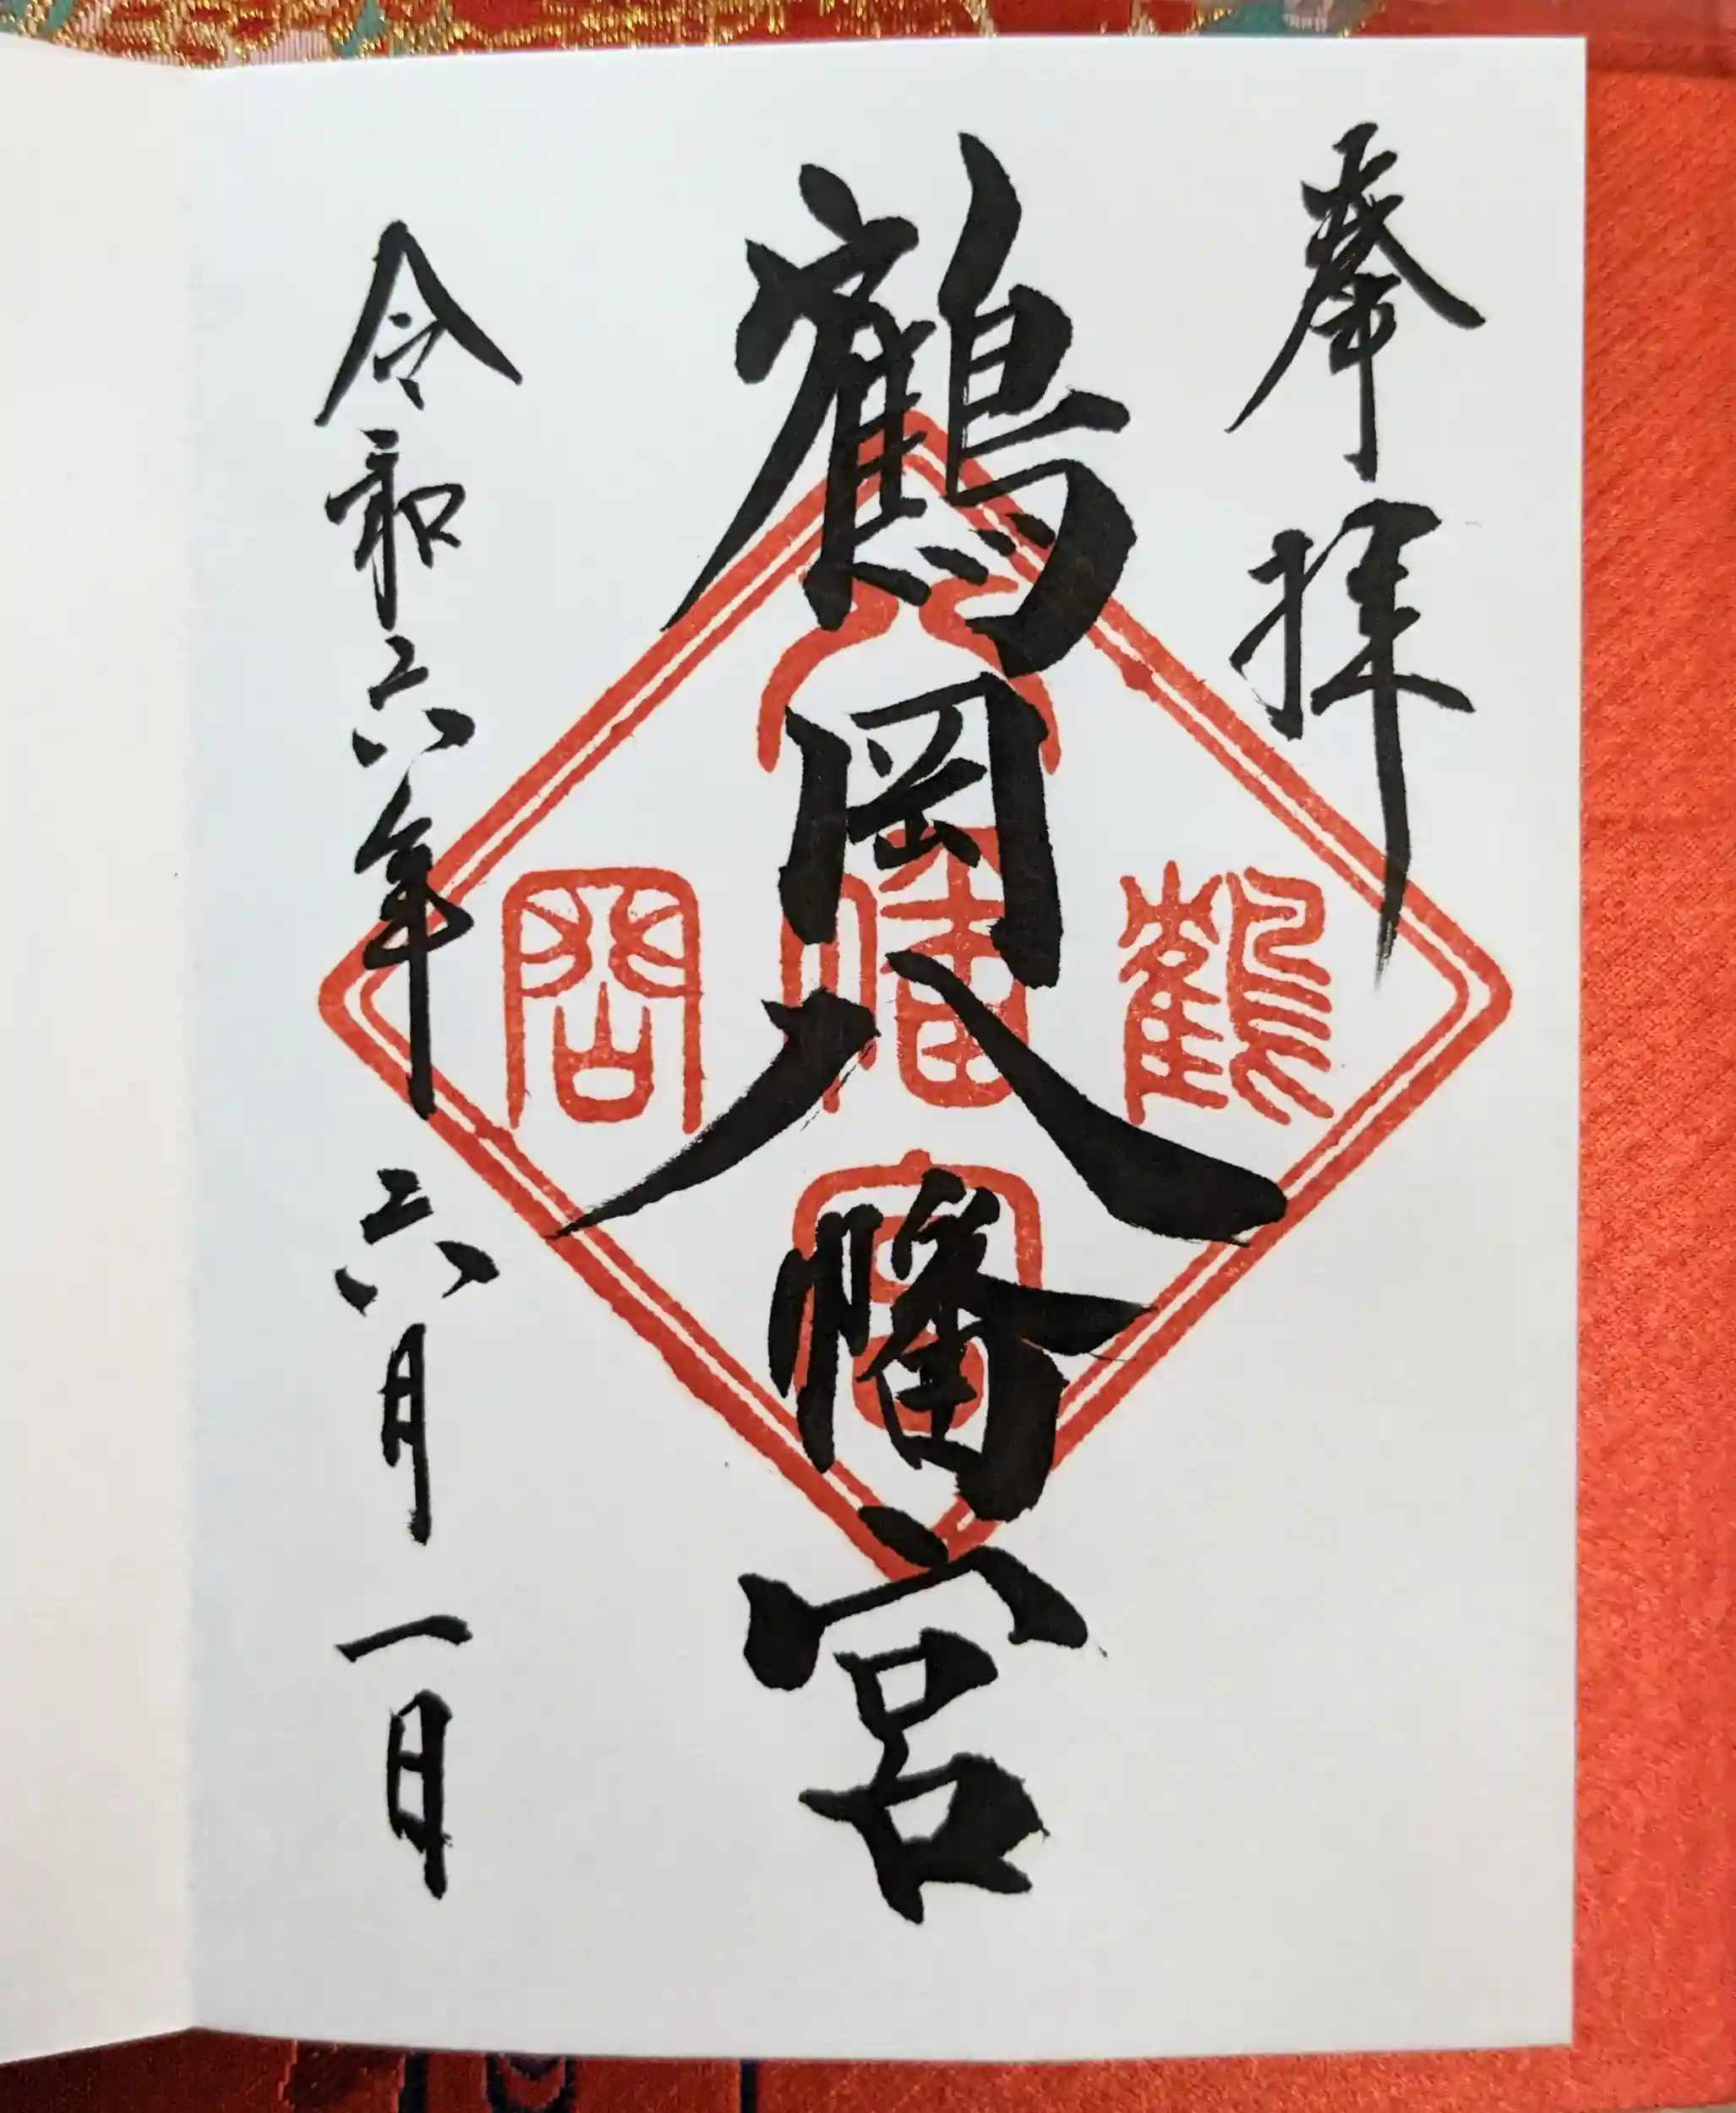 奉拝
鶴岡八幡宮
八幡宮
鶴
岡
令和六年 六月 一日